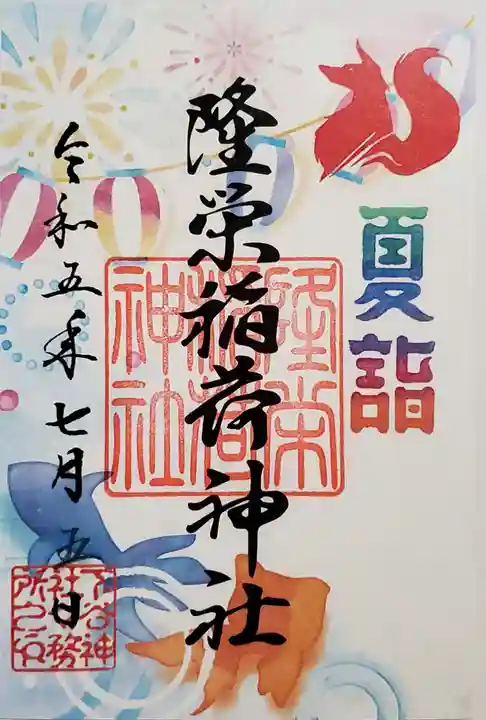 夏詣
隆栄稲荷神社
隆栄
稲荷
神社
令和五年七月五日
下谷神
社社務
所之印